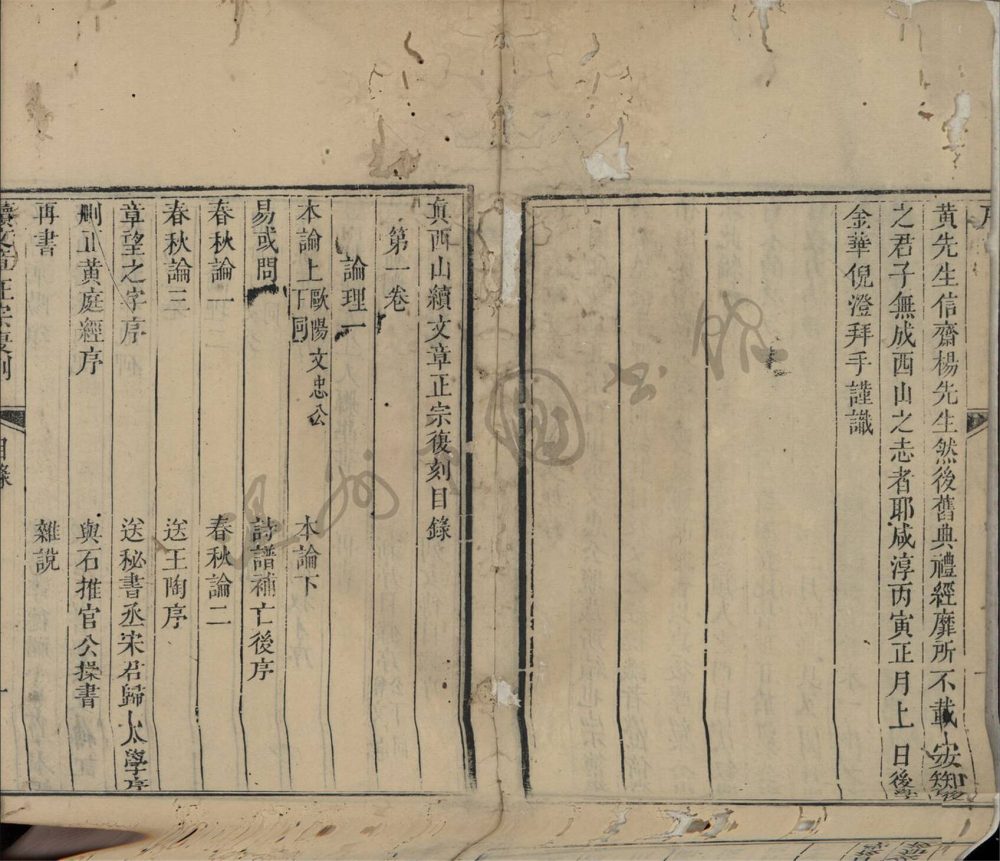 黄先生信齋楊先生然後舊典禮經靡所不載安知後
之君子無成西山之志者耶咸淳丙寅正月上日後學
金華倪澄拜手謹識
真西山續文章正宗復刻目錄
第一卷
論理一
本論上 歐陽文忠公下同 本論下
易或問 詩譜補亡後序
春秋論一 春秋論二
春秋論三 送王陶序
章望之字序 送秘書丞宋君歸太學序
刪正黃庭經序 與石推官公操書
再書 雜說
續文章正宗復刻 目錄 一